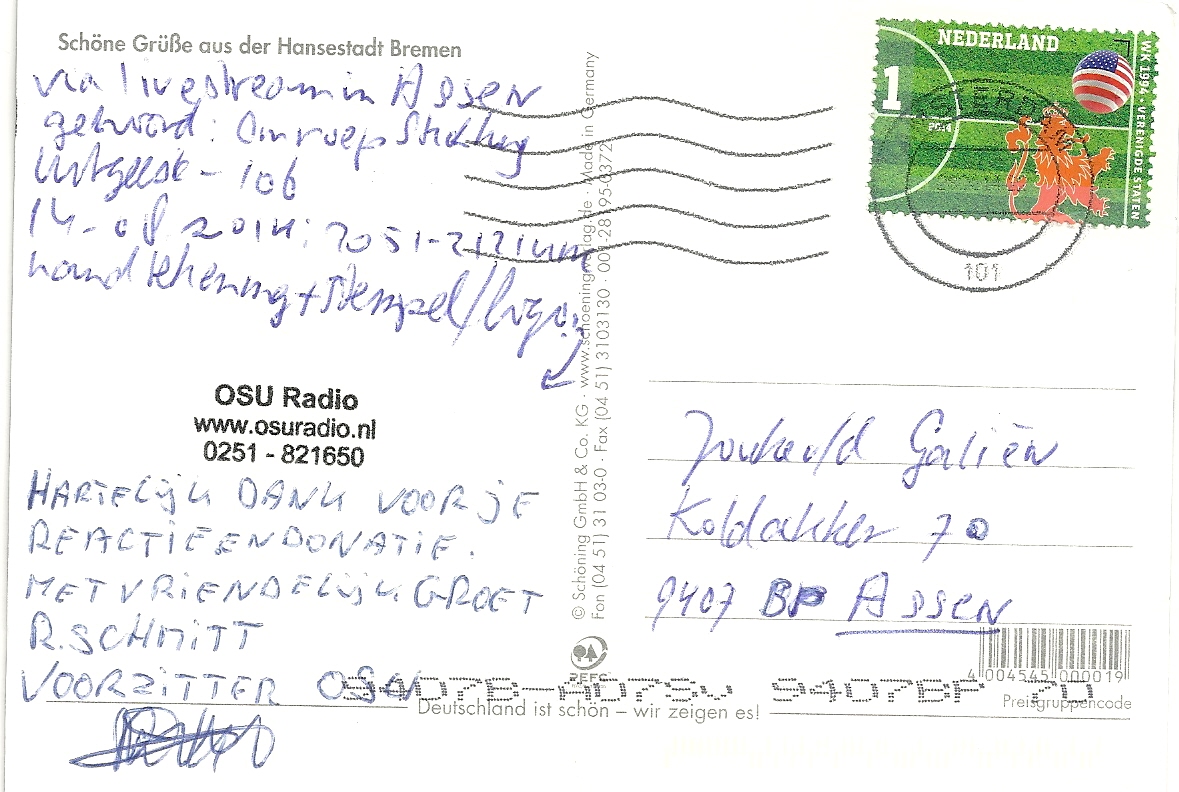 Schöne Grüße aus der Hansestadt Bremen
via livestream in Assen
gehoord: Omroep Stichting
Uitgeest - 106
14-08 2014: 2051-2121 uur
handtekening + stempel/logo:
OSU Radio
www.osuradio.nl
0251 - 821650
HARTELIJK DANK VOOR JE
REACTIE EN DONATIE.
MET VRIENDELIJK GROET
R. SCHMITT
VOORZITTER OSU
© Schöning GmbH & Co. KG · www.schoeningverlag.de · Made in Germany
Fon (04 51) 31 03-0 · Fax (04 51) 3103130 · 001-28-195-0372
NEDERLAND
1
2014
WK 1994 · VERENIGDE STATEN
101
Galiën
Koldakker 70
9407 BP Assen
4 004545 000019
Preisgruppencode
9407BP 70
Deutschland ist schön – wir zeigen es!